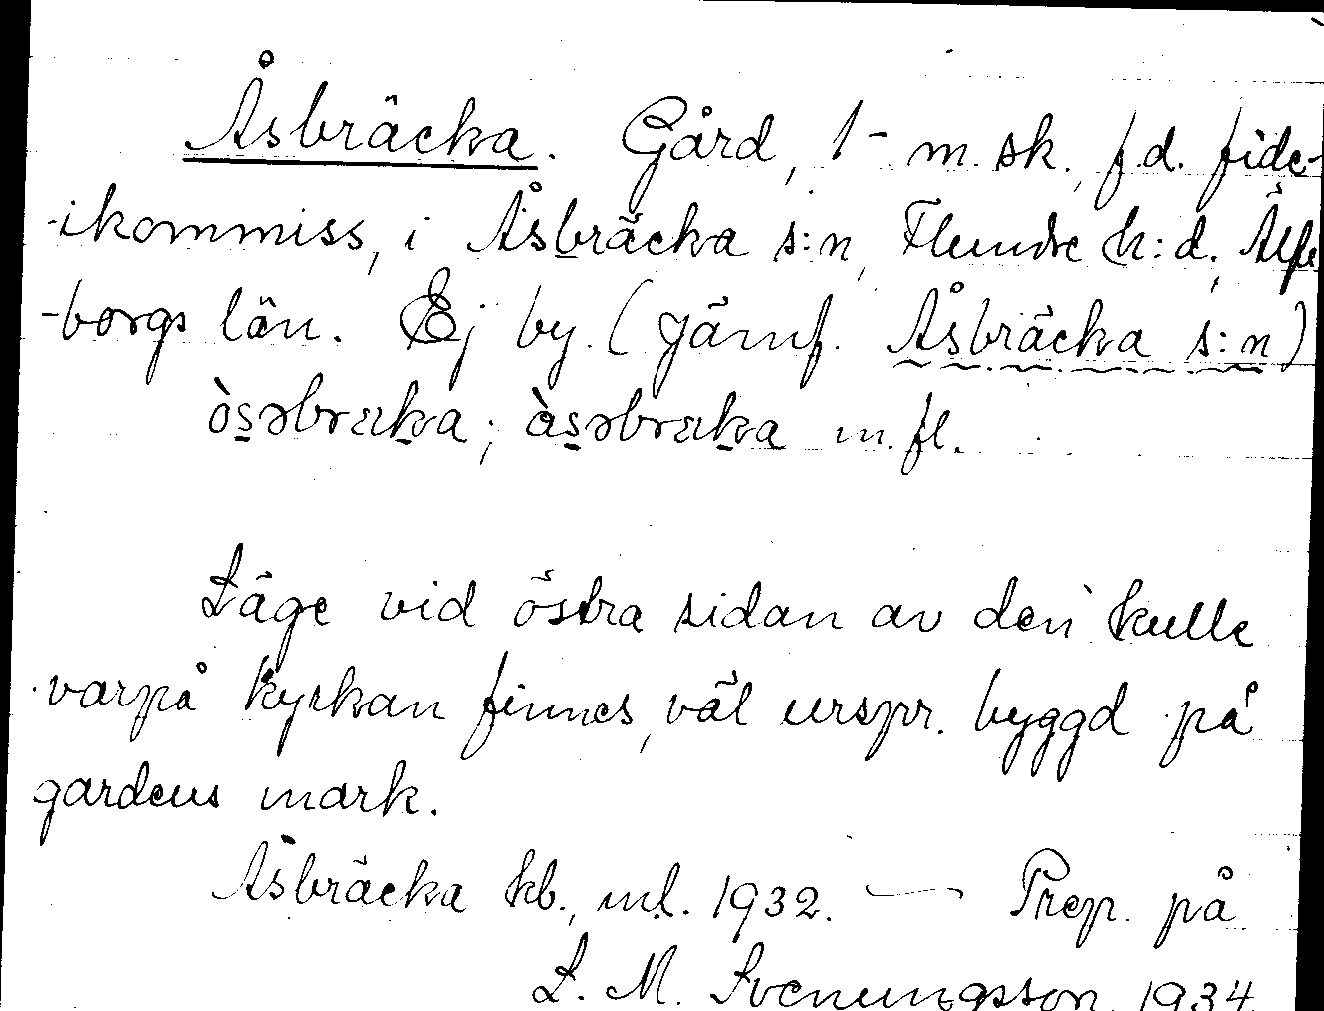 Åsbräcka. Gård, 1- m. sk., f.d. fide-
-ikommiss, i Åsbräcka s:n, Flundre h:d, Älfs
-borgs län. Ej by. (Jämf. Åsbräcka s:n)
òsəbræka; àsəbræka m.fl.
Läge vid östra sidan av den kulle
varpå kyrkan finnes, väl urspr. byggd på
gardens mark.
Åsbräcka kb., ml. 1932. — Prep. på
L. M. Svenungsson 1934